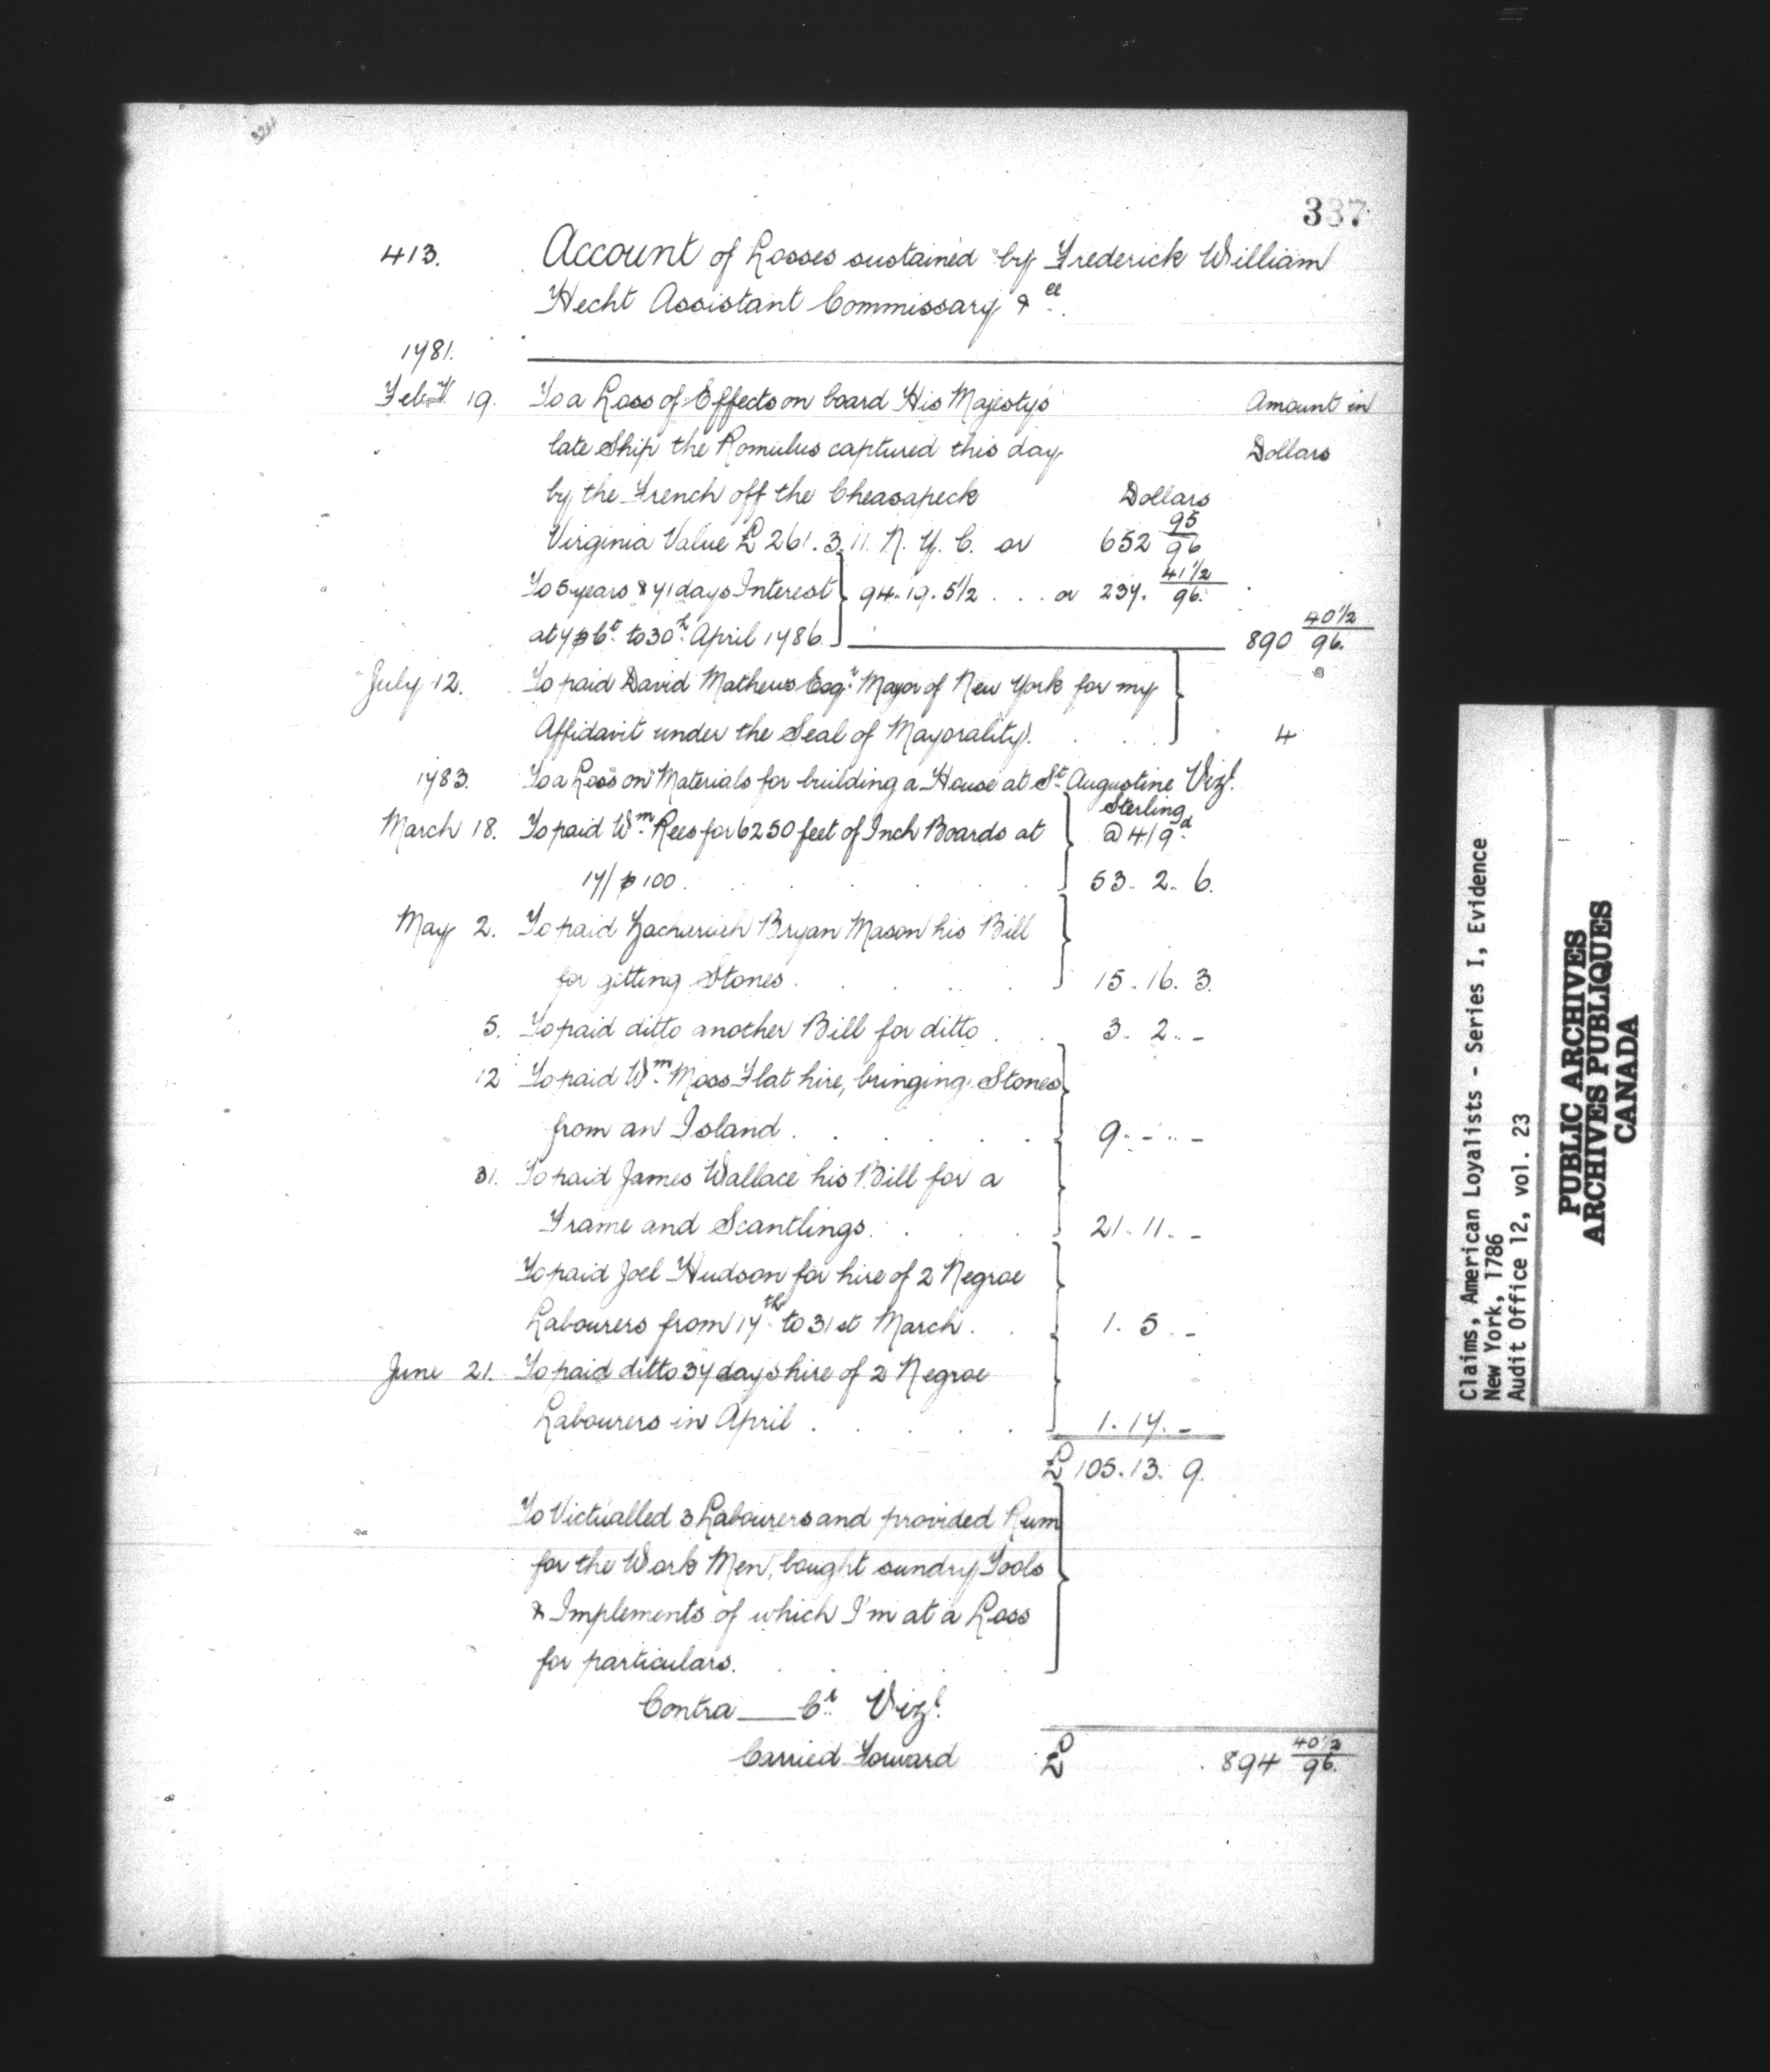 337
413. Account of Losses sustained by Frederick William
Hecht Assistant Commissary &ca.
1781.
Feby 19. To a Loss of Effects on board His Majesty's Amount in
late Ship the Romulus captured this day Dollars
by the French off the Cheasapeck Dollars
Virginia Value £261.3.11. N.Y.C. or 652 95/96
To 5 years & 71 days Interest } 94..19..5 1/2 . . . or 237. 41 1/2/96.
at 7 p Ct. to 30th April 1786. } 890 40 1/2/96.
July 12. To paid David Mathews Esqr. Mayor of New York for my }
Affidavit under the Seal of Mayorality. . . . } 4
1783. To a Loss on Materials for building a House at St. Augustine Vizt.
Sterling
March 18. To paid Wm. Rees for 6250 feet of Inch Boards at } @ 4/9d
17/ p 100. . . . . } 53.. 2.. 6.
May 2. To paid Zacheriah Bryan Mason his Bill }
for getting Stones. . . . . } 15..16. 3.
5. To paid ditto another Bill for ditto . . 3. 2.. -
12 To paid Wm. Moss Flat hire, bringing Stones }
from an Island . . . . . } 9.. - .. -
31. To paid James Wallace his Bill for a }
Frame and Scantlings. . . . } 21..11.. -
To paid Joel Hudson for hire of 2 Negroe }
Labourers from 17th to 31st March. . } 1. 5.. -
June 21. To paid ditto 34 days hire of 2 Negroe }
Labourers in April . . . . . } 1.17. -
£105.13. 9.
To Victualled 3 Labourers and provided Rum }
for the Work Men, bought sundry Tools }
& Implements of which I'm at a Loss }
for particulars. . . . . }
Contra ___ Cr. Vizt.
Carried Forward £ 894 40 1/2/96.
Claims, American Loyalists - Series I, Evidence
New York, 1786
Audit Office 12, vol. 23
PUBLIC ARCHIVES
ARCHIVES PUBLIQUES
CANADA